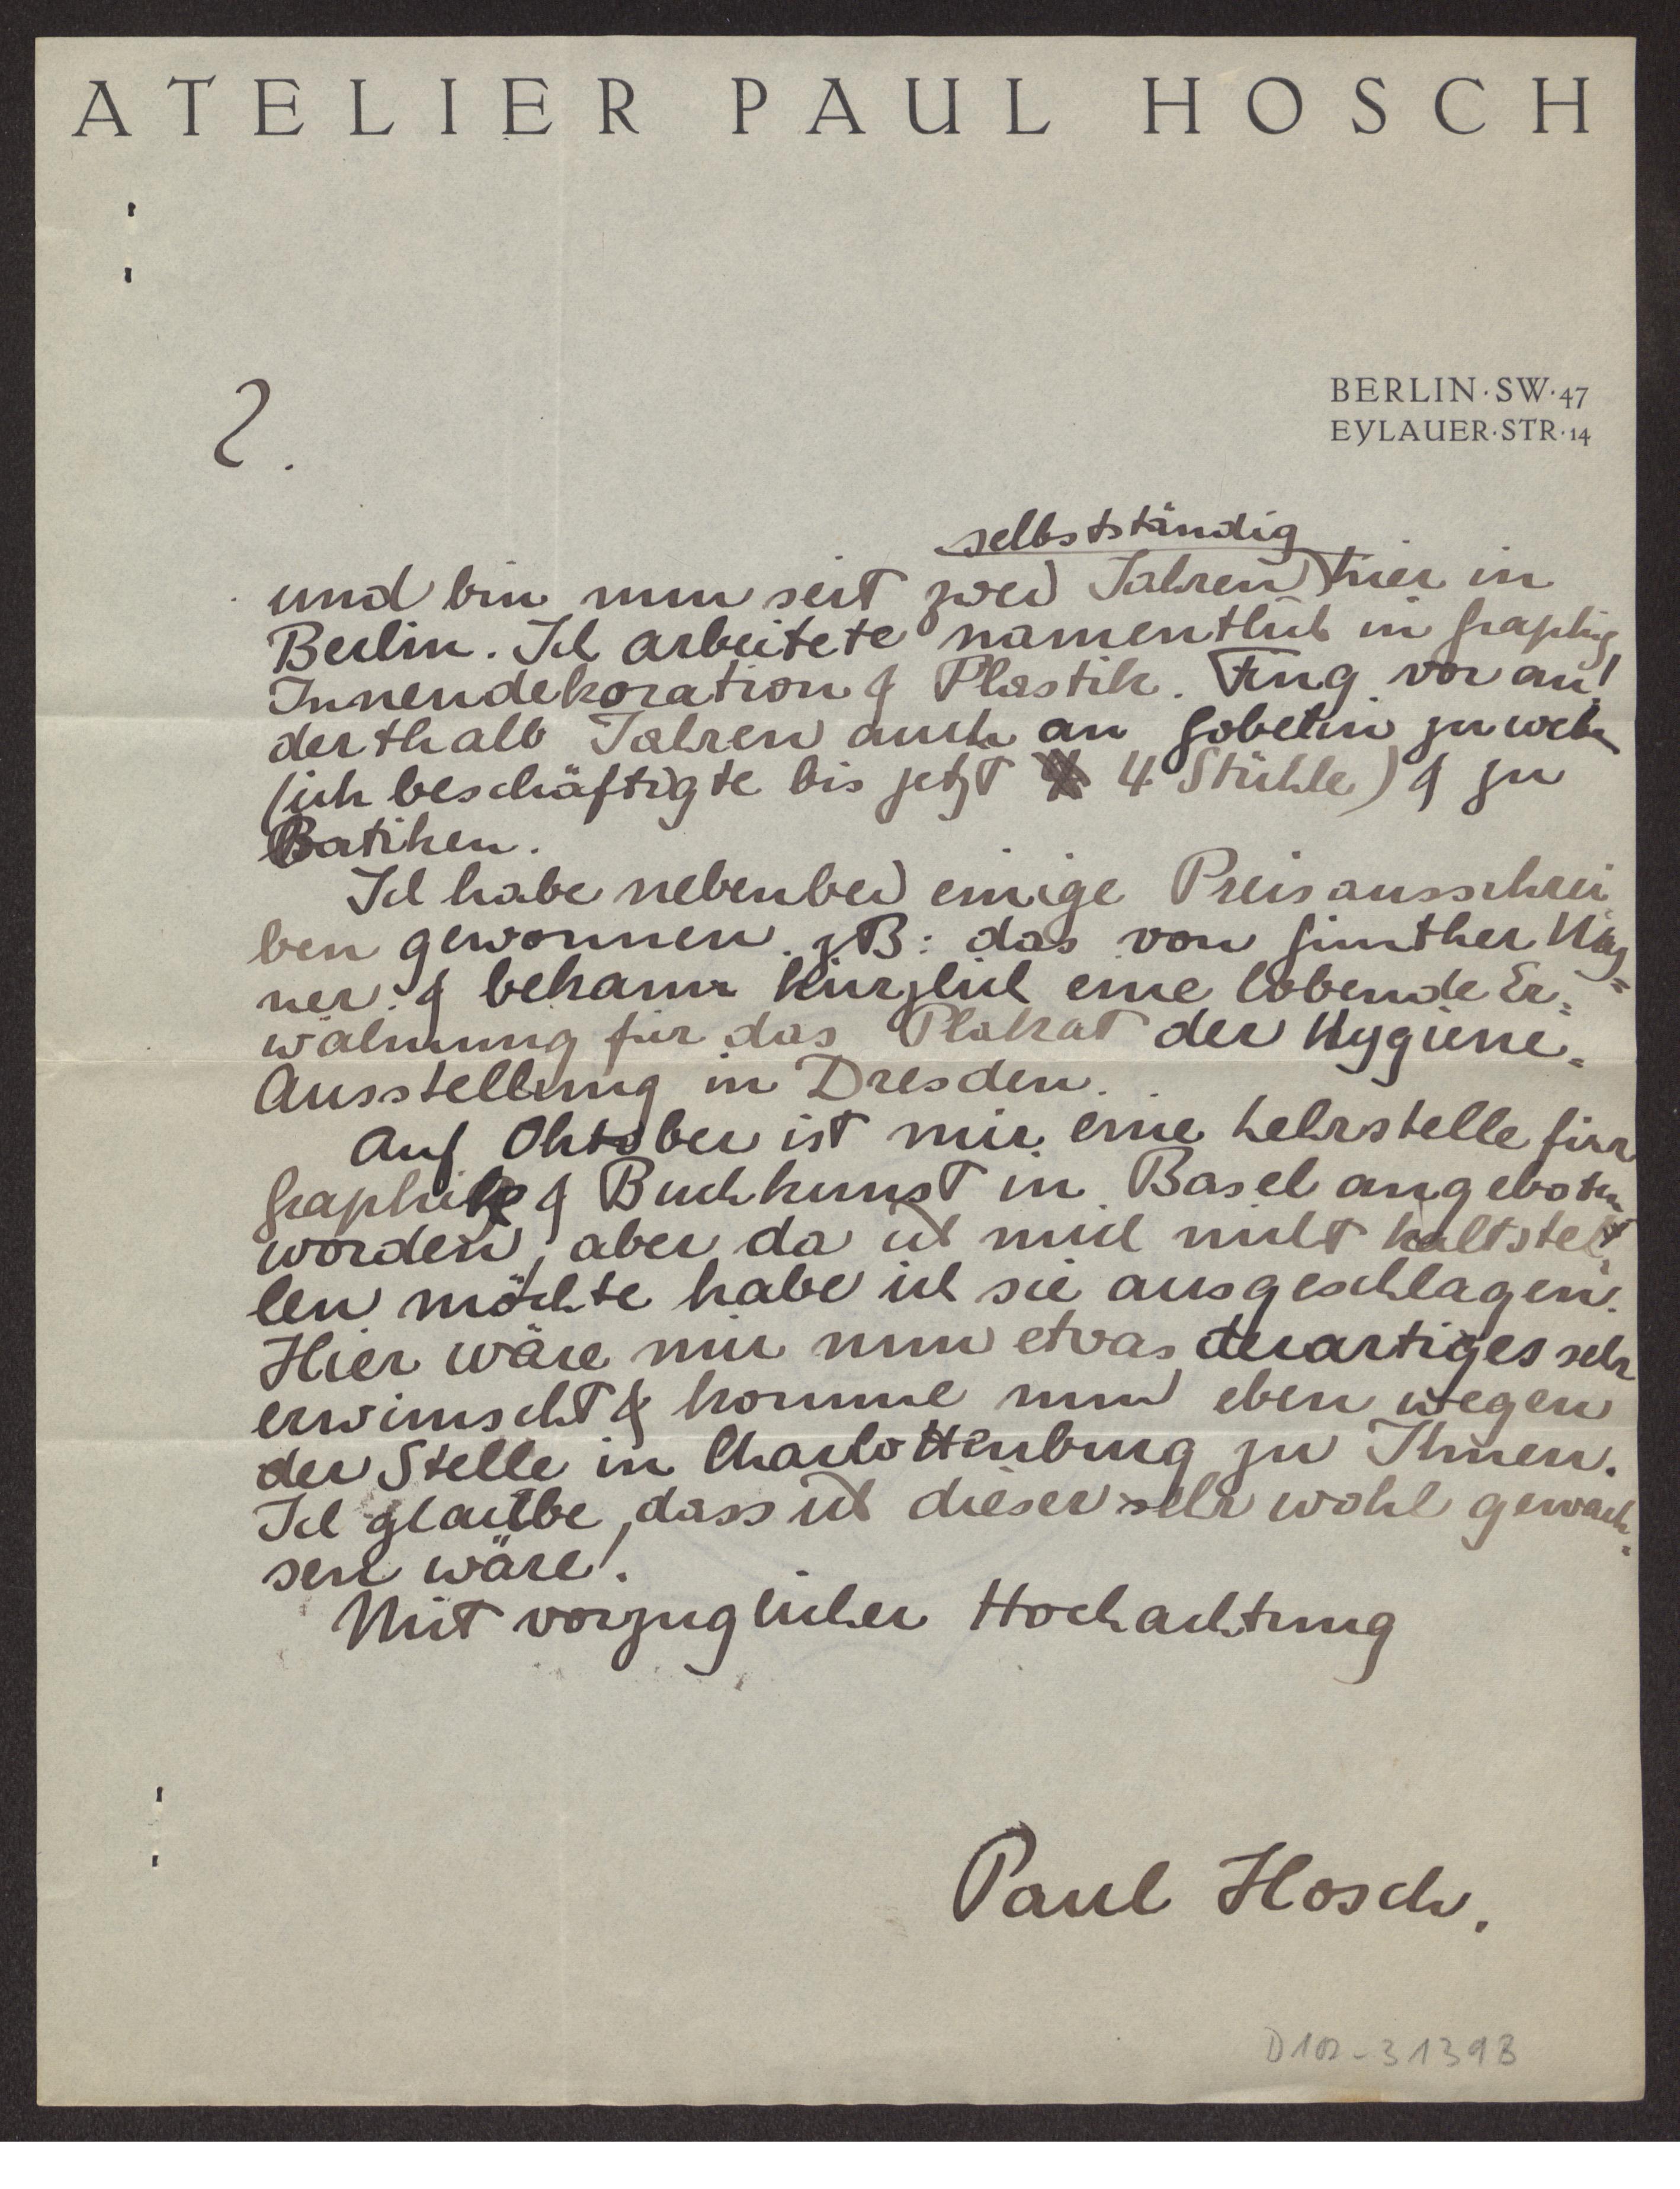 ATELIER PAUL HOSCH
BERLIN·SW·47
EYLAUER·STR·14
2.
selbstständig
und bin nun seit zwei Jahren hier in
Berlin. Ich arbeitete namentlich in Graphig,
Innendekoration & Plastik. Fing vor an!
derthalb Jahren auch an Gobelin zu weben
(ich beschäftigte bis jetzt 4 Stühle) & zu
Batiken.
Ich habe nebenbei einige Preisausschrei
ben gewonnen. z.B: das von Günther Wag=
ner. & bekam kürzlich eine lobende Er=
wähnung für das Plakat der Hygiene=
Ausstellung in Dresden.
Auf Oktober ist mir eine Lehrstelle für
Graphik & Buchkunst in Basel angeboten
worden, aber da ich mich nicht kaltstel=
len möchte habe ich sie ausgeschlagen.
Hier wäre mir nun etwas derartiges sehr
erwünscht & komme nun eben wegen
der Stelle in Charlottenburg zu Ihnen.
Ich glaube, dass ich dieser sehr wohl gewach=
sen wäre!
Mit vorzüglicher Hochachtung
Paul Hosch.
D102-31393